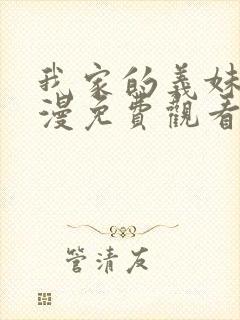 我家的義妹
漫免費觀看
管清友